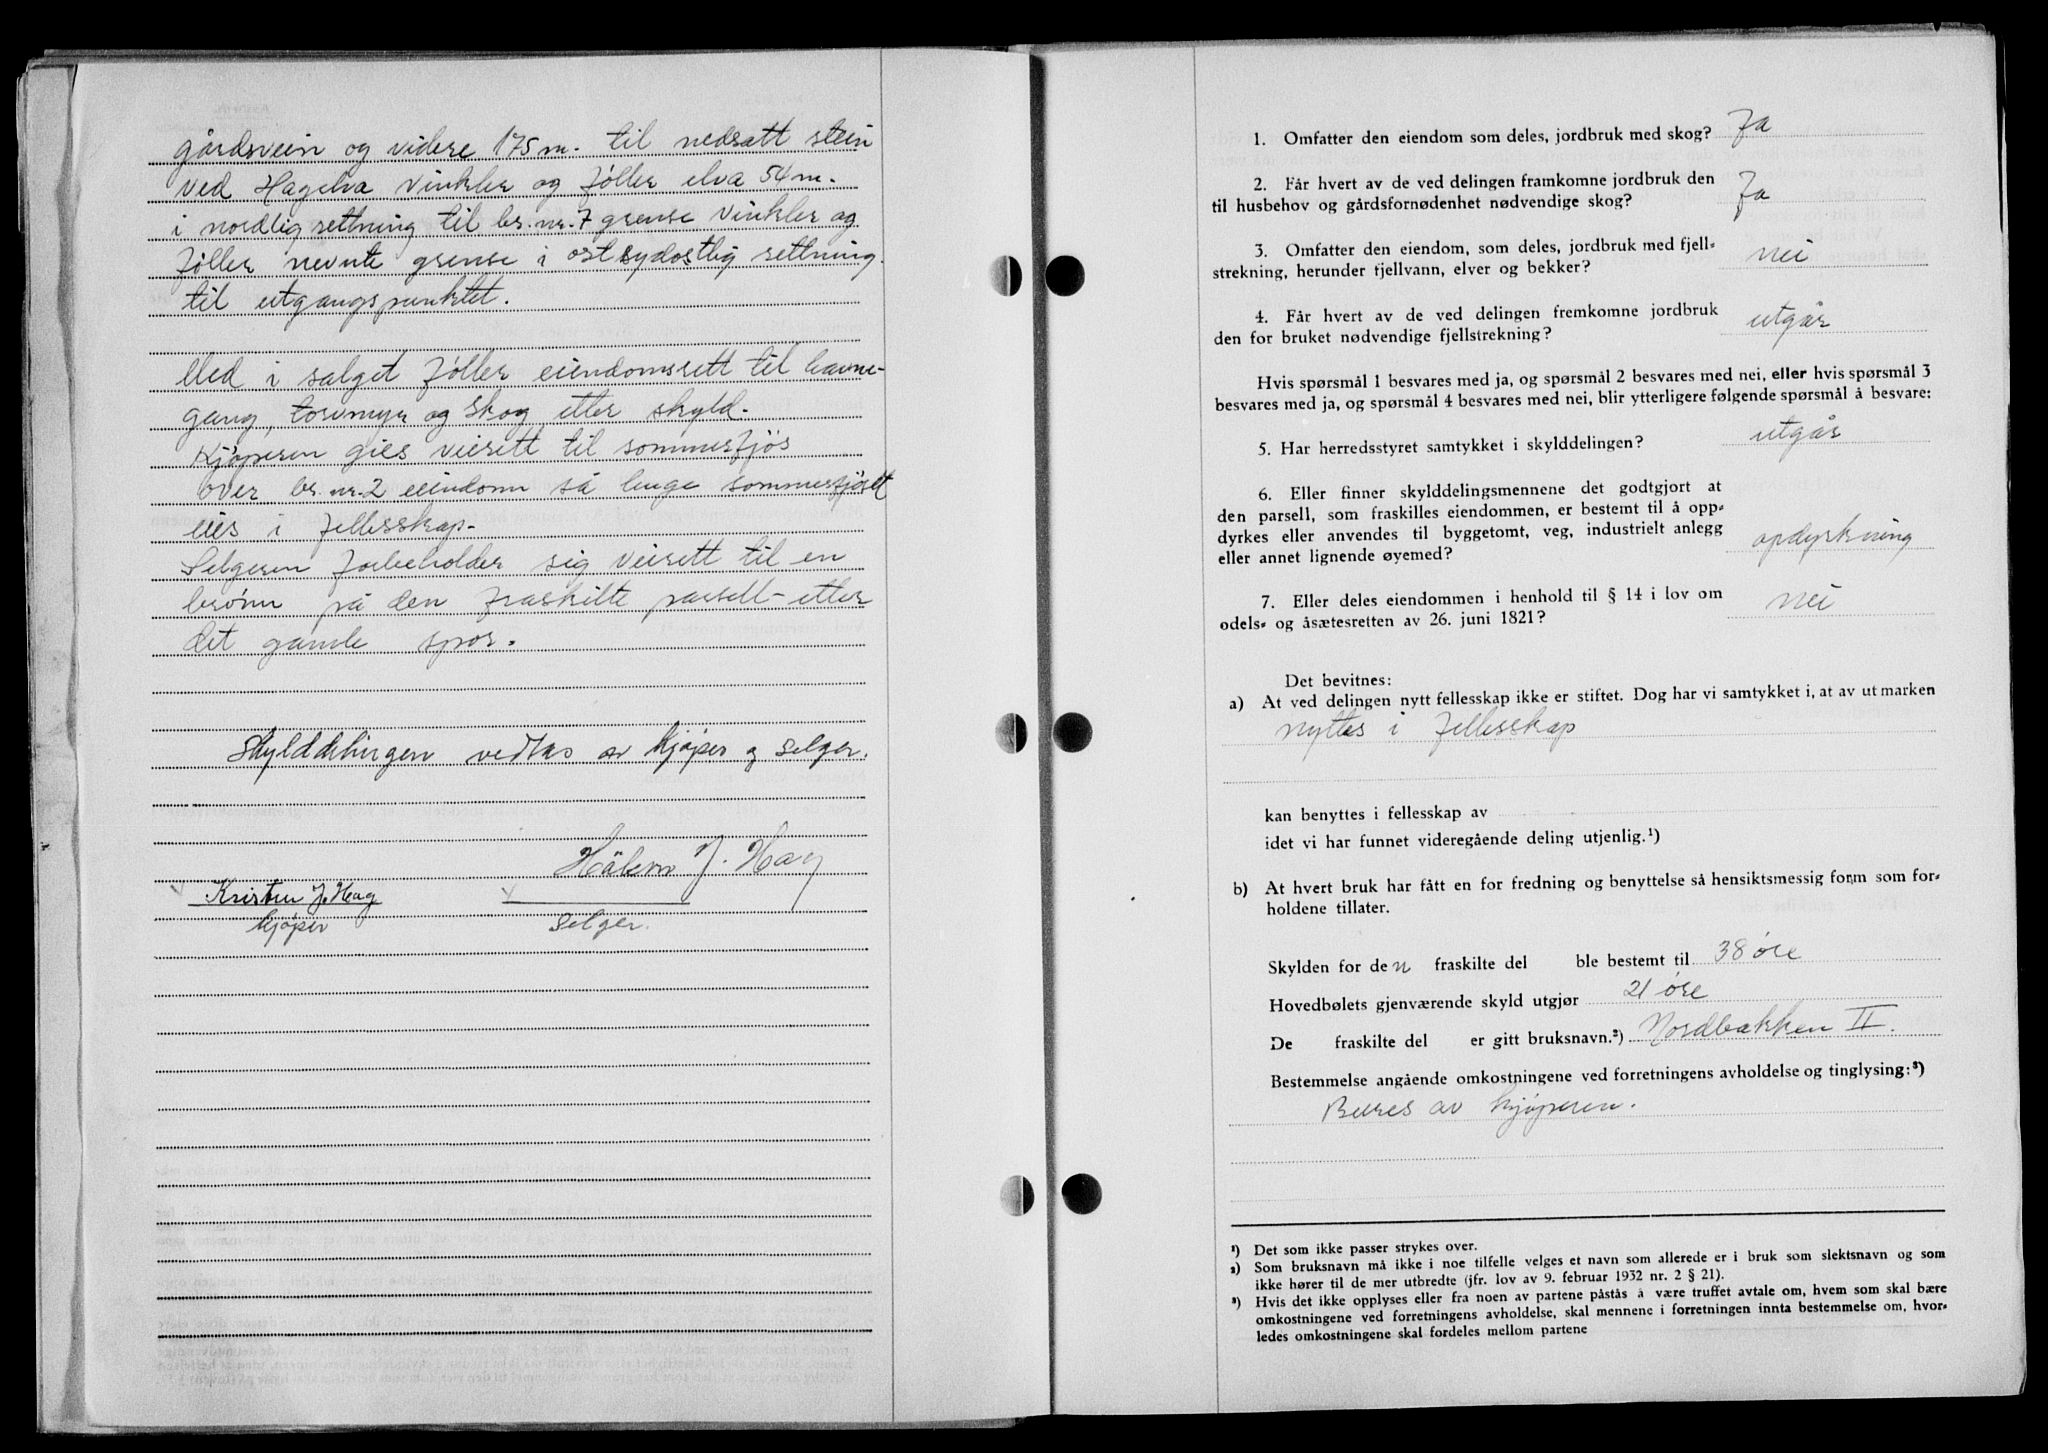 gårdsvein og videre 175 m. til nedsatt stein
ved Hagelva vinkler og føller elva 54 m.
i nordlig rettning til br. nr. 7 grense vinkler og
føller nevnte grense i ostsydostlig rettning.
til utgangspunktet.
Med i salget føller eiendomsrett til havne-
gang, torvmyr og skog etter skyld.
Kjøperen gies veirett til sommerfjøs
over br. nr. 2 eiendom så lenge sommerfjøset
eies i fellesskap.
Selgeren forbeholder sig veirett til en
brønn på den fraskilte parsell - etter
det gamle spor.
Skylddelingen vedtas av kjøper og selger.
Håkon J. Hag
Kristen J. Hag
kjøper
selger.
1. Omfatter den eiendom som deles, jordbruk med skog? Ja
2. Får hvert av de ved delingen framkomne jordbruk den
til husbehov og gårdsfornødenhet nødvendige skog? Ja
3. Omfatter den eiendom, som deles, jordbruk med fjell-
strekning, herunder fjellvann, elver og bekker? nei
4. Får hvert av de ved delingen fremkomne jordbruk
den for bruket nødvendige fjellstrekning? utgår
Hvis spørsmål 1 besvares med ja, og spørsmål 2 besvares med nei, eller hvis spørsmål 3
besvares med ja, og spørsmål 4 besvares med nei, blir ytterligere følgende spørsmål å besvare:
5. Har herredsstyret samtykket i skylddelingen? utgår
6. Eller finner skylddelingsmennene det godtgjort at
den parsell, som fraskilles eiendommen, er bestemt til å opp-
dyrkes eller anvendes til byggetomt, veg, industrielt anlegg
eller annet lignende øyemed? opdyrkning
7. Eller deles eiendommen i henhold til § 14 i lov om
odels- og åsætesretten av 26. juni 1821? nei
Det bevitnes:
a) At ved delingen nytt fellesskap ikke er stiftet. Dog har vi samtykket i, at av utmarken
nyttes i fellesskap
kan benyttes i fellesskap av
idet vi har funnet videregående deling utjenlig.¹)
b) At hvert bruk har fått en for fredning og benyttelse så hensiktsmessig form som for-
holdene tillater.
Skylden for den fraskilte del ble bestemt til 38 øre
Hovedbølets gjenværende skyld utgjør 21 øre
De fraskilte del er gitt bruksnavn.²) Nordbakken II.
Bestemmelse angående omkostningene ved forretningens avholdelse og tinglysing:³)
Beres av kjøperen.
¹) Det som ikke passer strykes over.
²) Som bruksnavn må ikke i noe tilfelle velges et navn som allerede er i bruk som slektsnavn og som
ikke hører til de mer utbredte (jfr. lov av 9. februar 1932 nr. 2 § 21).
³) Hvis det ikke opplyses eller fra noen av partene påstås å være truffet avtale om, hvem som skal bære
omkostningene ved forretningens avholdelse, skal mennene i forretningen innta bestemmelse om, hvor-
ledes omkostningene skal fordeles mellom partene